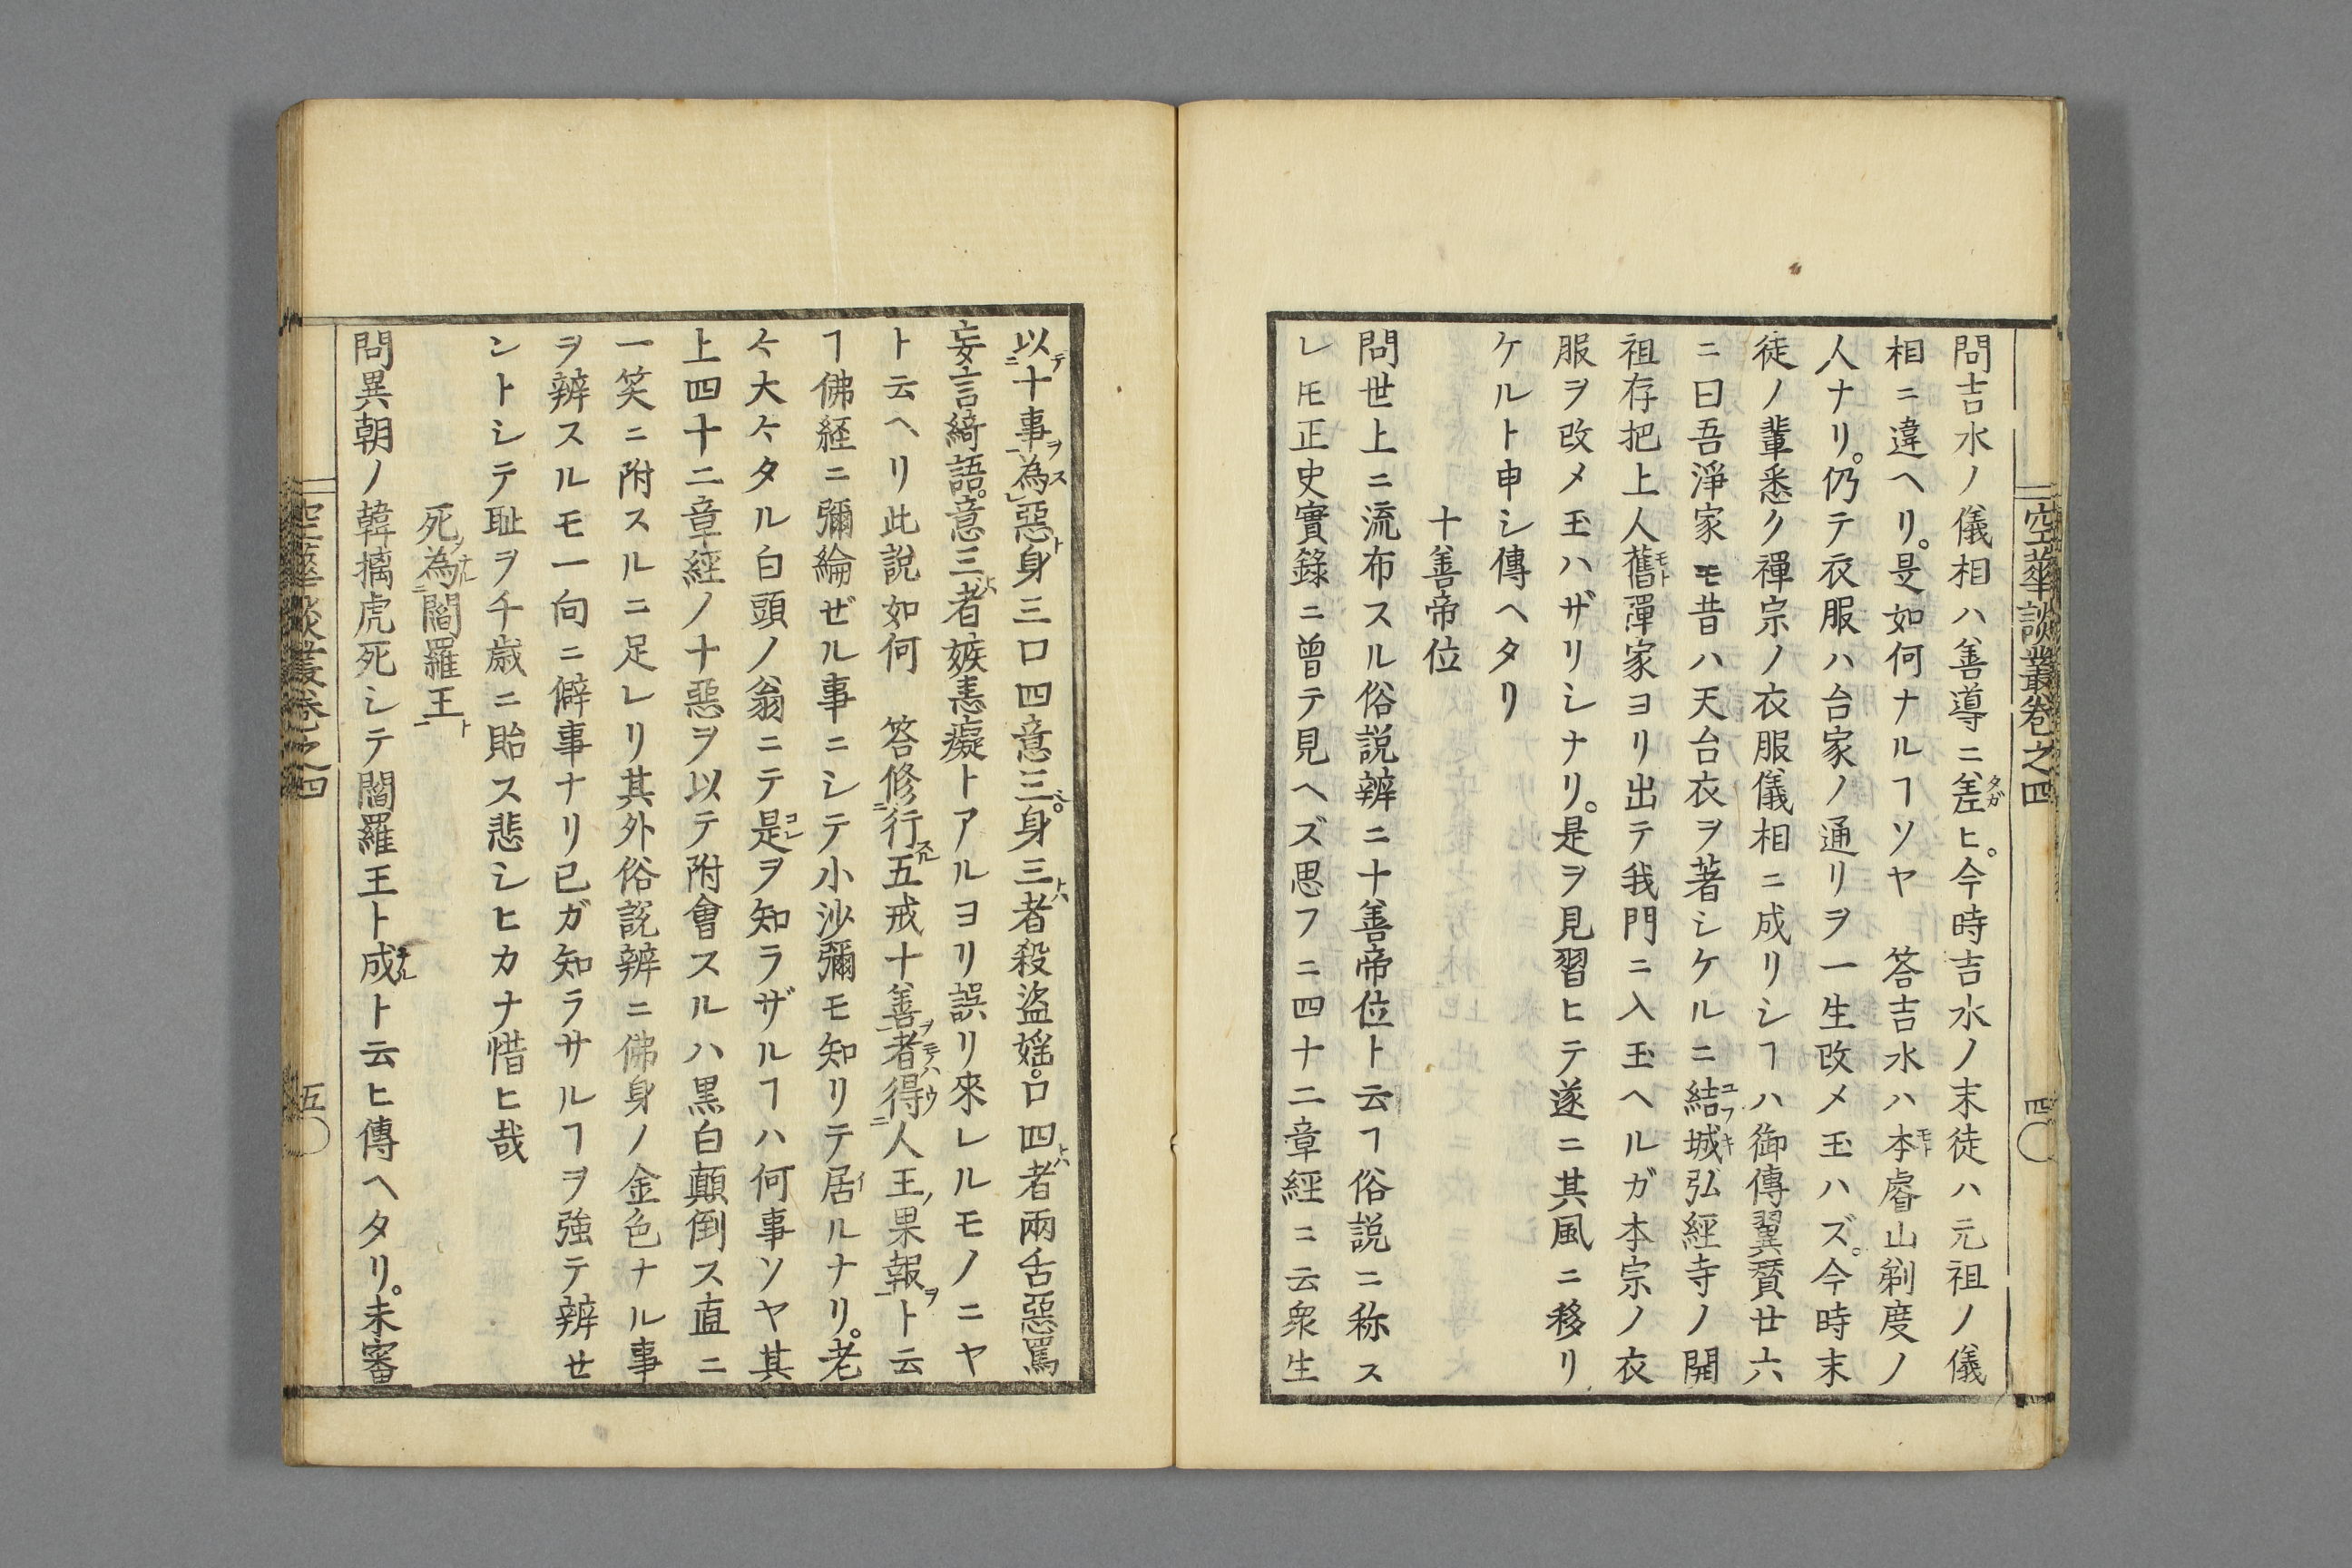 空華談叢卷之四
四
問吉水ノ儀相ハ善導ニ差ヒ。今時吉水ノ末徒ハ元祖ノ儀
相ニ違ヘリ。是如何ナルヿソヤ　答吉水ハ本睿山剃度ノ
人ナリ。仍テ衣服ハ台家ノ通リヲ一生改メ玉ハズ。今時末
徒ノ輩悉ク禪宗ノ衣服儀相ニ成リシヿハ御傳翼賛廿六
ニ曰吾淨家モ昔ハ天台衣ヲ著シケルニ結城弘經寺ノ開
祖存把上人舊禪家ヨリ出テ我門ニ入玉ヘルガ本宗ノ衣
服ヲ改メ玉ハザリシナリ。是ヲ見習ヒテ遂ニ其風ニ移リ
ケルト申シ傳ヘタリ
十善帝位
問世上ニ流布スル俗説辨ニ十善帝位ト云ヿ俗説ニ称ス
レ𪜈正史實錄ニ曾テ見ヘズ思フニ四十二章經ニ云衆生
以十事為惡身三口四意三。身三者殺盜婬。口四者兩舌惡罵
妄言綺語。意三者嫉恚癡トアルヨリ誤リ來レルモノニヤ
ト云ヘリ此説如何　答修行五戒十善者得人王果報ト云
ヿ佛経ニ彌綸ゼル事ニシテ小沙彌モ知リテ居ルナリ。老
ケ大ケタル白頭ノ翁ニテ是ヲ知ラザルヿハ何事ソヤ其
上四十二章經ノ十惡ヲ以テ附會スルハ黒白顛倒ス直ニ
一笑ニ附スルニ足レリ其外俗説辨ニ佛身ノ金色ナル事
ヲ辨スルモ一向ニ僻事ナリ已ガ知ラサルヿヲ強テ辨セ
ントシテ耻ヲ千歳ニ貽ス悲シヒカナ惜ヒ哉
死為閻羅王
問異朝ノ韓擒虎死シテ閻羅王ト成ト云ヒ傳ヘタリ。未審
空華談叢卷之四
五